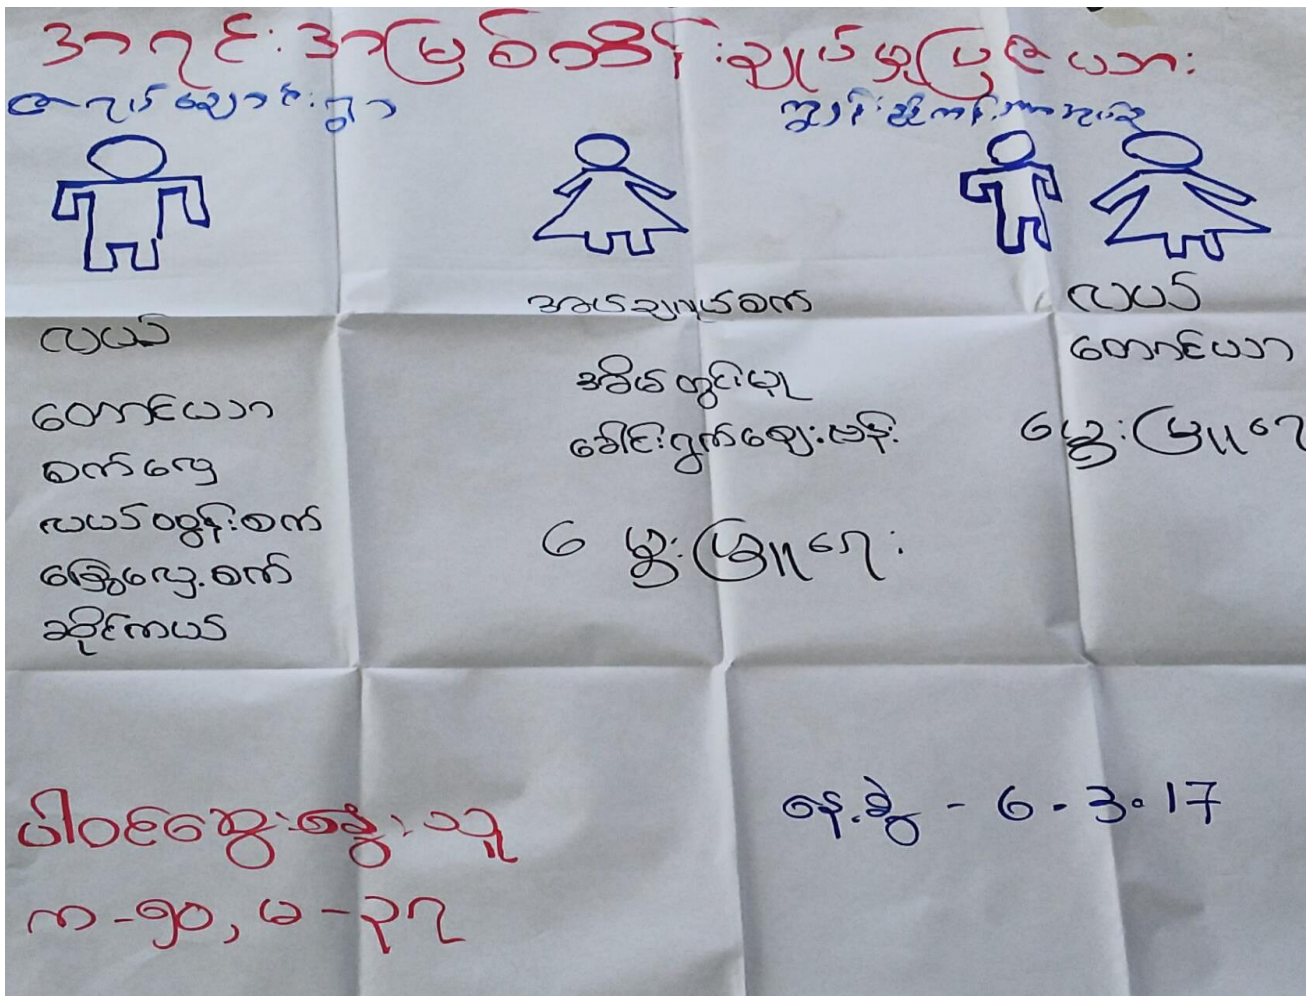 အရင်းအမြစ်ထိန်းချုပ်မှုပြဇယား
ကျွန်းညိုကင်းကျေးအုပ်စု
လယ်
တောင်ယာ
စက်လှေ
လယ်ထွန်စက်
ခြွေလှေ့စက်
ဆိုင်ကယ်
အပ်ချုပ်စက်
အိမ်တွင်းမှု
ခေါင်းရွက်ဈေးသည်
မွေးမြူရေး
လယ်
တောင်ယာ
မွေးမြူရေး
ပါဝင်ဆွေးနွေးသူ
ကျ - ၅၀, မ - ၃၇
နေ့စွဲ - 6 - 3 . 17